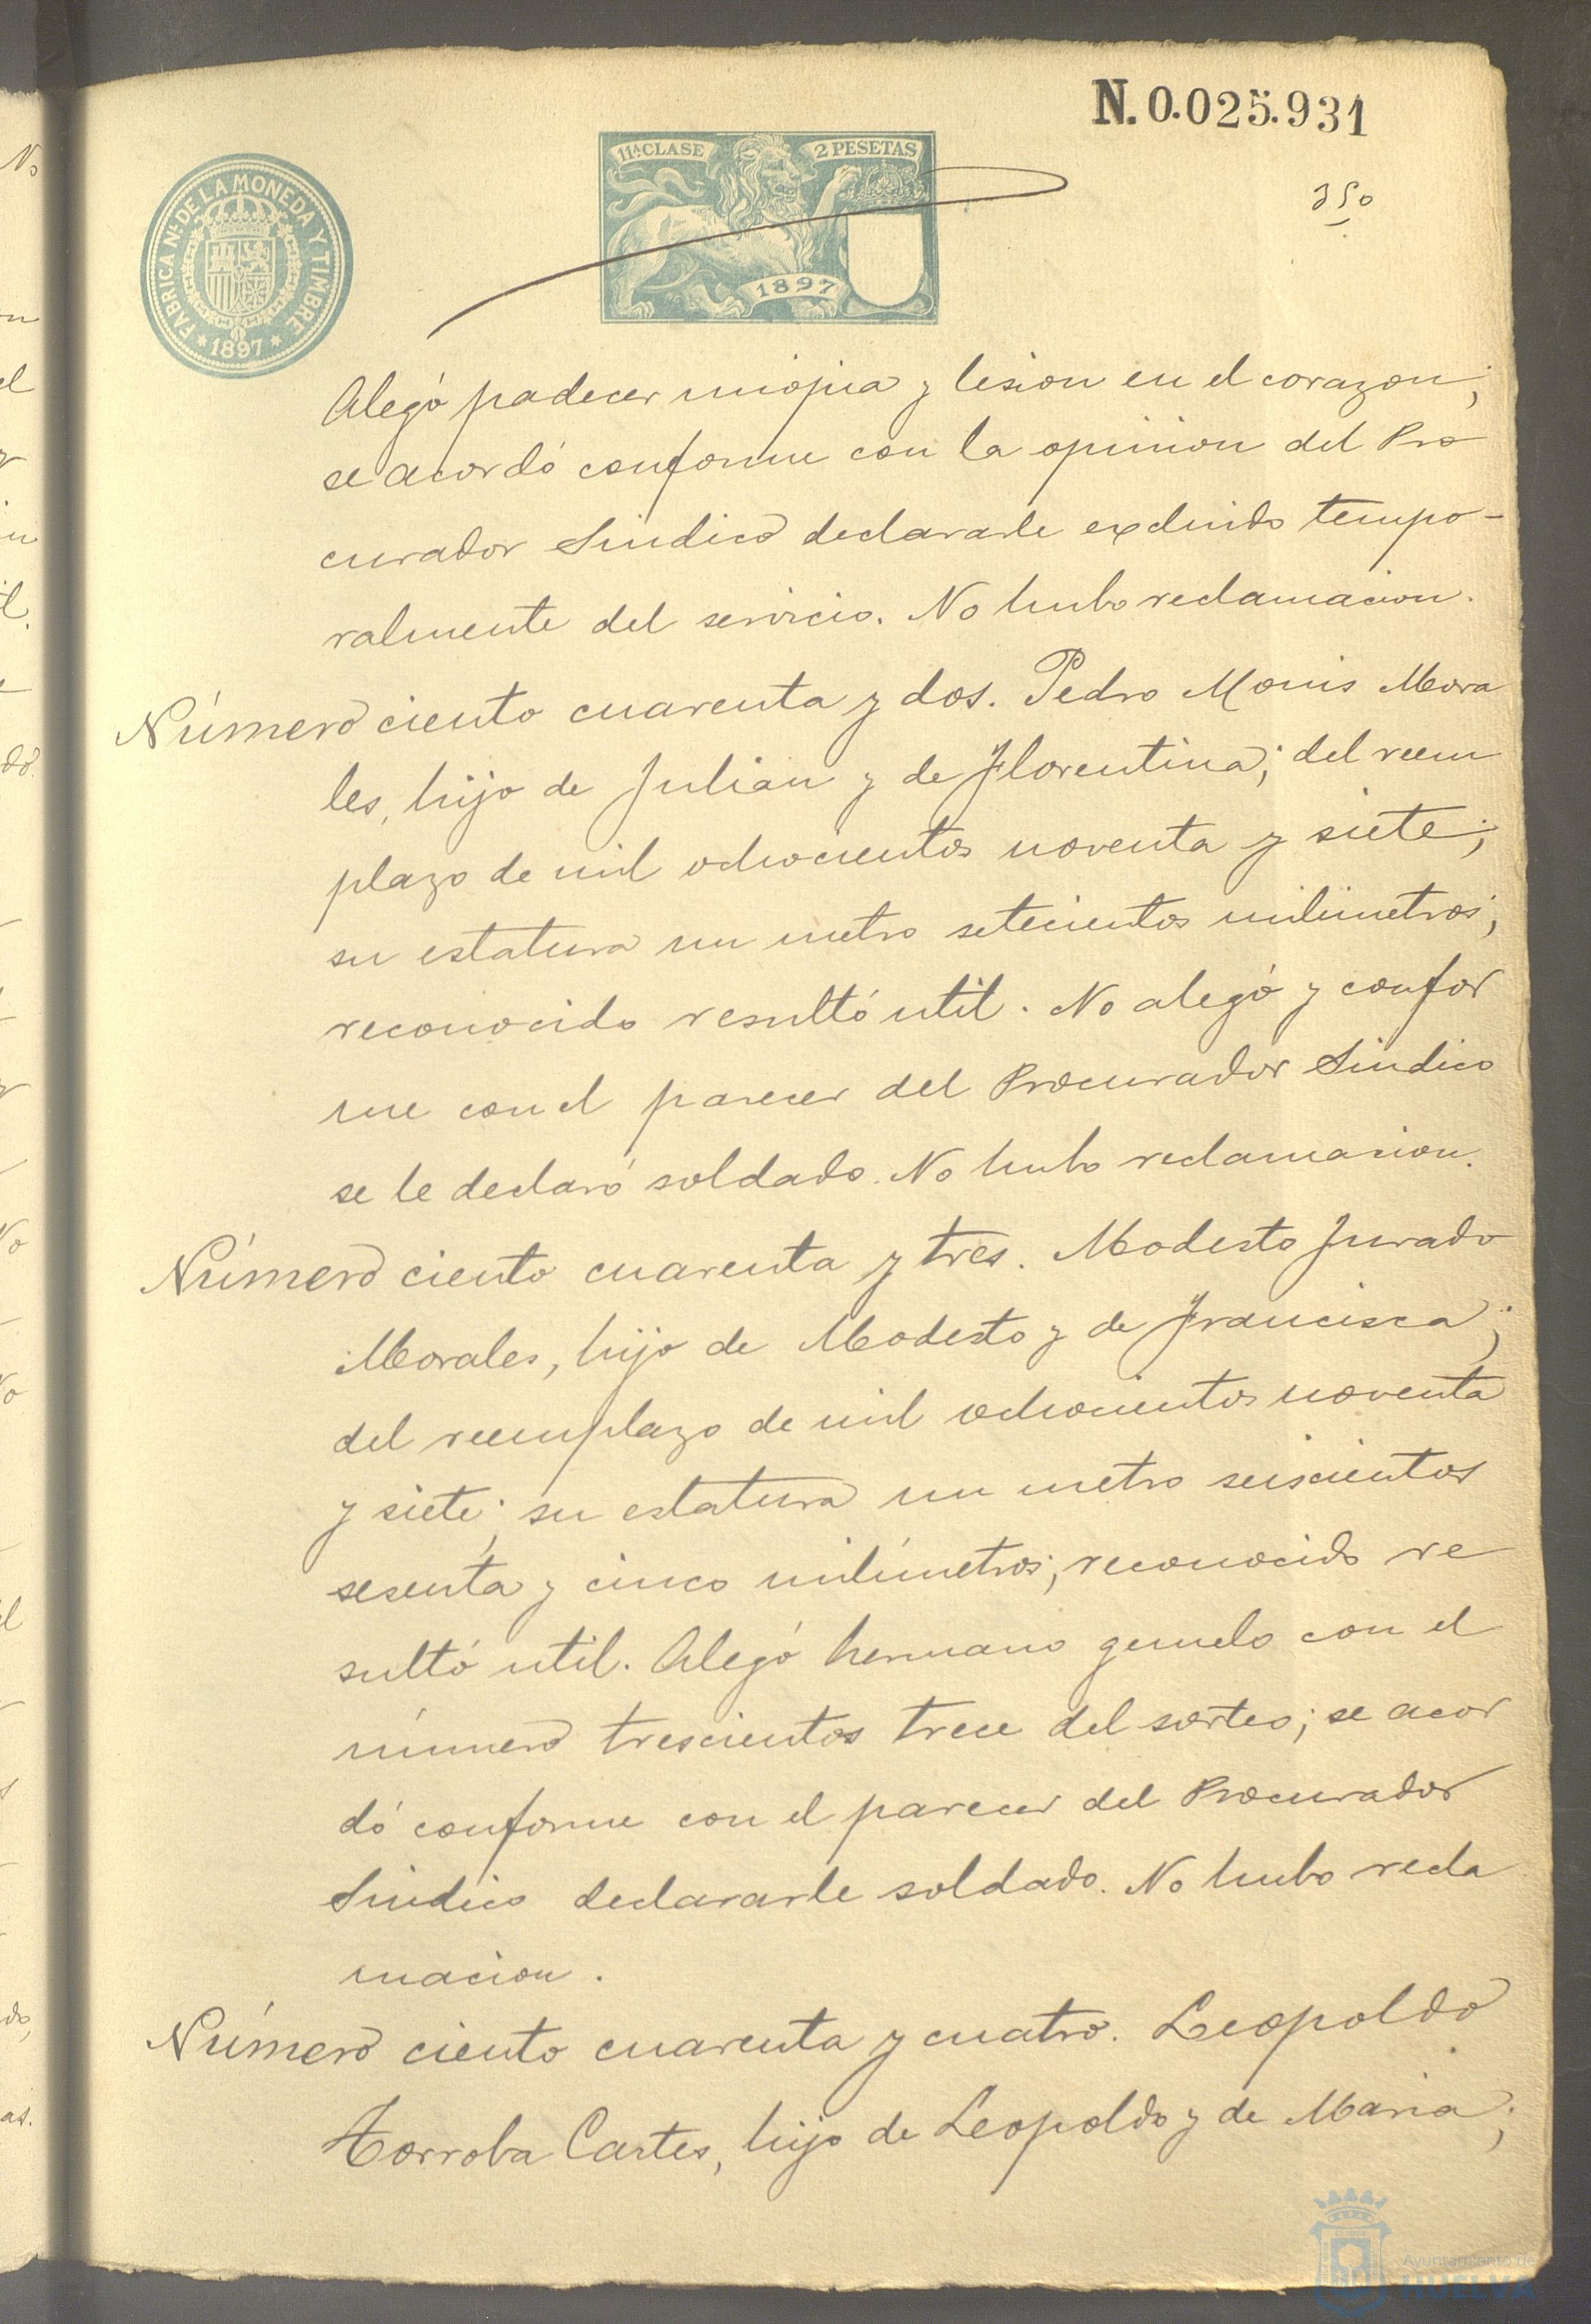 N. 0.025.931
350
FABRICA N.ᴸ DE LA MONEDA Y TIMBRE
* 1897 *
11ᴬ CLASE
2 PESETAS
1897
Alegó padecer miopia y lesion en el corazon;
se acordó conforme con la opinion del Pro
curador Sindico declararle excluido tempo-
ralmente del servicio. No hubo reclamacion.
Número ciento cuarenta y dos. Pedro Monis Mora
les, hijo de Julian y de Florentina; del reem
plazo de mil ochocientos noventa y siete;
su estatura un metro setecientos milímetros;
reconocido resultó util. No alegó y confor
me con el parecer del Procurador Sindico
se le declaró soldado. No hubo reclamacion.
Número ciento cuarenta y tres. Modesto Jurado
Morales, hijo de Modesto y de Francisca;
del reemplazo de mil ochocientos noventa
y siete; su estatura un metro seiscientos
sesenta y cinco milímetros; reconocido re
sultó util. Alegó hermano gemelo con el
número trescientos trece del sorteo; se acor
dó conforme con el parecer del Procurador
Sindico declararle soldado. No hubo recla
macion.
Número ciento cuarenta y cuatro. Leopoldo
Torroba Cartes, hijo de Leopoldo y de Maria;
Ayuntamiento de
HUELVA